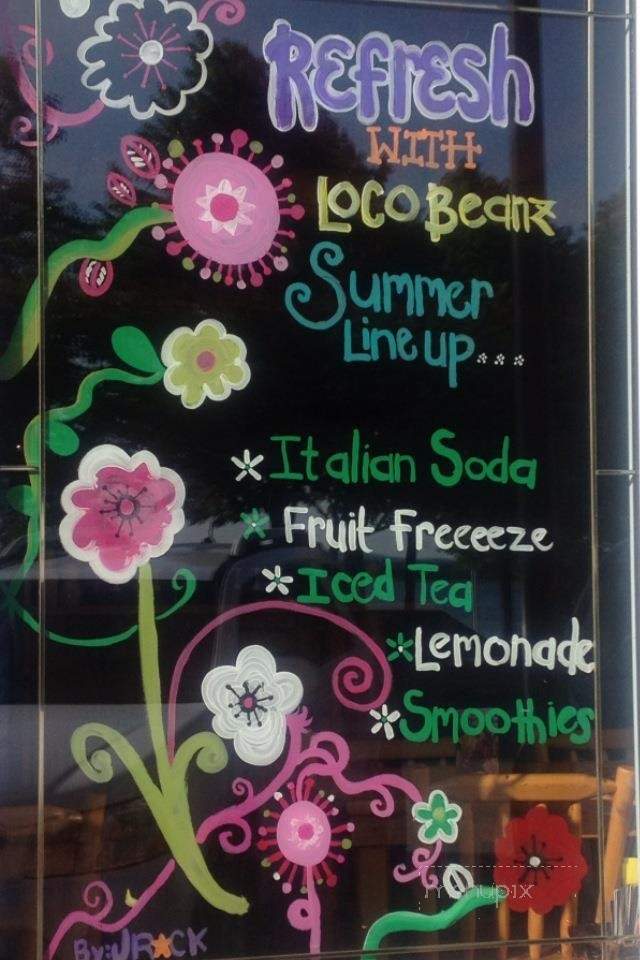 Refresh
WITH
Loco Beanz
Summer
Line up...
Italian Soda
Fruit Freeeeze
Iced Tea
Lemonade
Smoothies
menupix
By: JR★CK